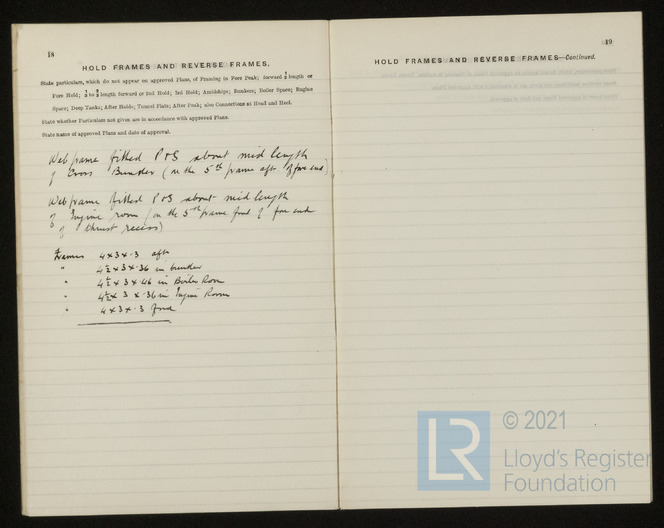 18
HOLD FRAMES AND REVERSE FRAMES.
State particulars, which do not appear on approved Plans, of Framing in Fore Peak; forward ½ length or
Fore Hold; ⅓ to ½ length forward or 2nd Hold; 3rd Hold; Amidships; Bunkers; Boiler Space; Engine
Space; Deep Tanks; After Holds; Tunnel Flats; After Peak; also Connections at Head and Heel.
State whether Particulars not given are in accordance with approved Plans.
State name of approved Plans and date of approval.
Web frame fitted P & S about mid length
of Cross Bunker (on the 5th frame aft of fore end)
Web frame fitted P & S about mid length
of Engine room (on the 5th frame ford of fore end
of thrust recess)
Frames 4 x 3 x .3 aft
" 4½ x 3 x .36 in bunker
" 4½ x 3 x .46 in Boiler Room
" 4½ x 3 x .36 in Engine Room
" 4 x 3 x .3 ford
19
HOLD FRAMES AND REVERSE FRAMES—Continued.
LR
© 2021
Lloyd's Register
Foundation